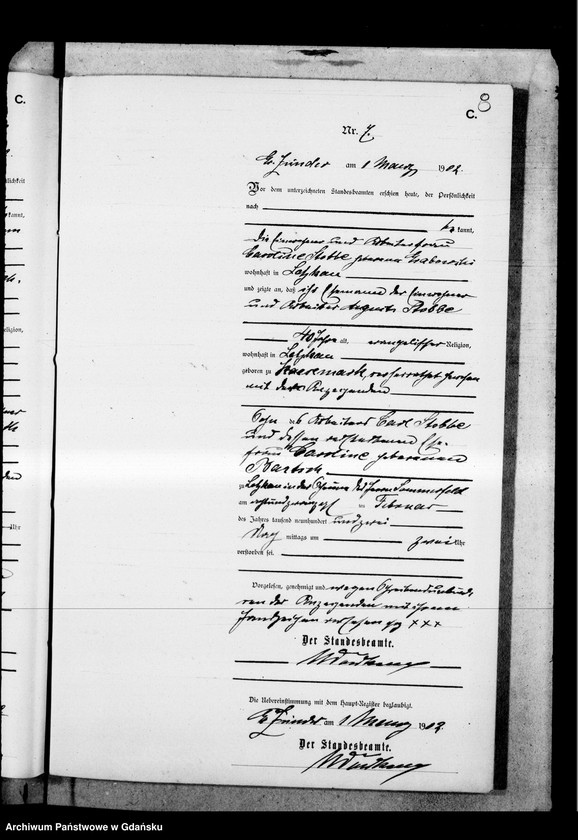 C.
8
C.
Nr. 7.
Gr. Zünder am 1 Maerz 1902.
Vor dem unterzeichneten Standesbeamten erschien heute, der Persönlichkeit
nach
kannt,
die Einwohner und Arbeiterfrau
Caroline Stobbe geborene Grabowski
wohnhaft in Letzkau
und zeigte an, daß ihr Ehemann der Einwohner
und Arbeiter August Stobbe
40 Jahre alt, evangelischer Religion,
wohnhaft in Letzkau
geboren zu Kaesemark, verheirathet gewesen
mit der Anzeigenden
Sohn des Arbeiters Carl Stobbe
und dessen verstorbenen Ehe-
frau Caroline geborenen
Bartsch
zu Letzkau in der Scheune des Herrn Sommerfeld
am achtundzwanzigsten Februar
des Jahres tausend neunhundert und zwei
Nachmittags um zwei Uhr
verstorben sei.
Vorgelesen, genehmigt und wegen Schreibensunkunde
von der Anzeigenden mit ihrem
Handzeichen versehen xxx
Der Standesbeamte.
Die Uebereinstimmung mit dem Haupt-Register beglaubigt.
Gr. Zünder am 1 Maerz 1902.
Der Standesbeamte.
Archiwum Państwowe w Gdańsku